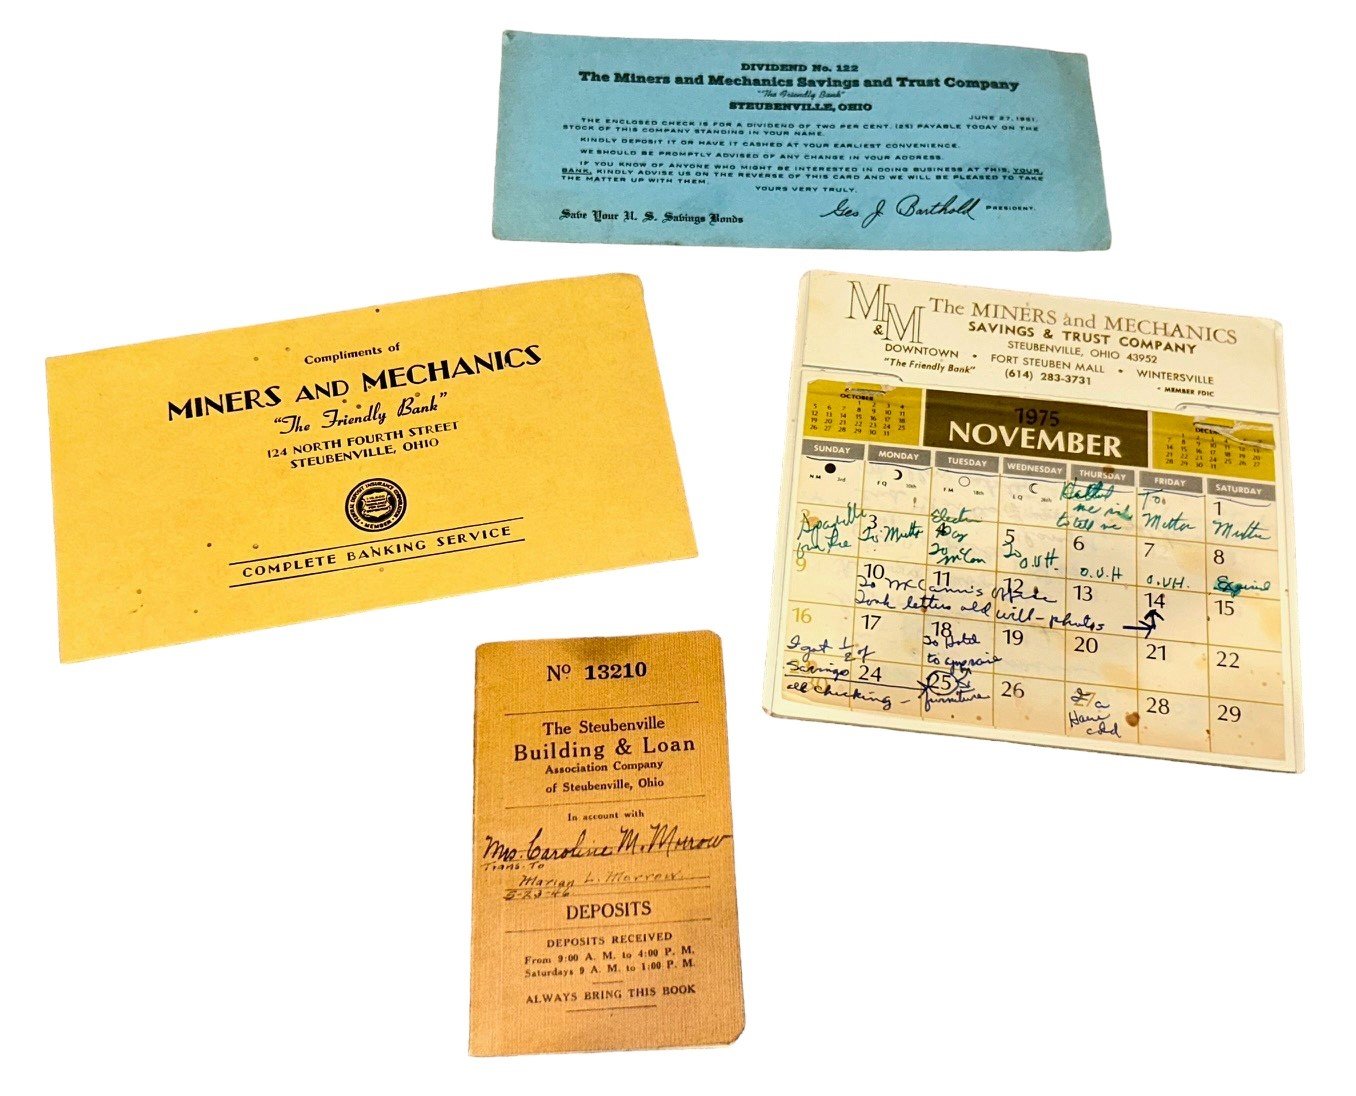 DIVIDEND No. 122
The Miners and Mechanics Savings and Trust Company
"The Friendly Bank"
STEUBENVILLE, OHIO
JUNE 27, 1951.
THE ENCLOSED CHECK IS FOR A DIVIDEND OF TWO PER CENT. (2%) PAYABLE TODAY ON THE
STOCK OF THIS COMPANY STANDING IN YOUR NAME.
KINDLY DEPOSIT IT OR HAVE IT CASHED AT YOUR EARLIEST CONVENIENCE.
WE SHOULD BE PROMPTLY ADVISED OF ANY CHANGE IN YOUR ADDRESS.
IF YOU KNOW OF ANYONE WHO MIGHT BE INTERESTED IN DOING BUSINESS AT THIS, YOUR
BANK, KINDLY ADVISE US ON THE REVERSE OF THIS CARD AND WE WILL BE PLEASED TO TAKE
THE MATTER UP WITH THEM.
YOURS VERY TRULY,
Save Your U. S. Savings Bonds
Geo J. Barthold PRESIDENT.
Compliments of
MINERS AND MECHANICS
"The Friendly Bank"
124 NORTH FOURTH STREET
STEUBENVILLE, OHIO
COMPLETE BANKING SERVICE
M&M The MINERS and MECHANICS
SAVINGS & TRUST COMPANY
STEUBENVILLE, OHIO 43952
DOWNTOWN • FORT STEUBEN MALL • WINTERSVILLE
"The Friendly Bank"
(614) 283-3731
• MEMBER FDIC
OCTOBER
1975
NOVEMBER
SUNDAY MONDAY TUESDAY WEDNESDAY THURSDAY FRIDAY SATURDAY
N M 3rd 10th F M 18th L Q 26th
to tell me
1
3 4 5 6 7 8
Election Day
To O.V.H. O.V.H O.VH. Expired
9 10 11 12 13 14 15
To McCann's office
Took letters old will - photos
16 17 18 19 20 21 22
I got ½ of To Hotel
Savings to appraise
all checking - furniture
24 25 26 27 28 29
30
I a
Have
cold
No 13210
The Steubenville
Building & Loan
Association Company
of Steubenville, Ohio
In account with
Mrs. Caroline M. Morrow
Trans. To
Marian L. Morrow
5-23-46
DEPOSITS
DEPOSITS RECEIVED
From 9:00 A. M. to 4:00 P. M.
Saturdays 9 A. M. to 1:00 P. M.
ALWAYS BRING THIS BOOK